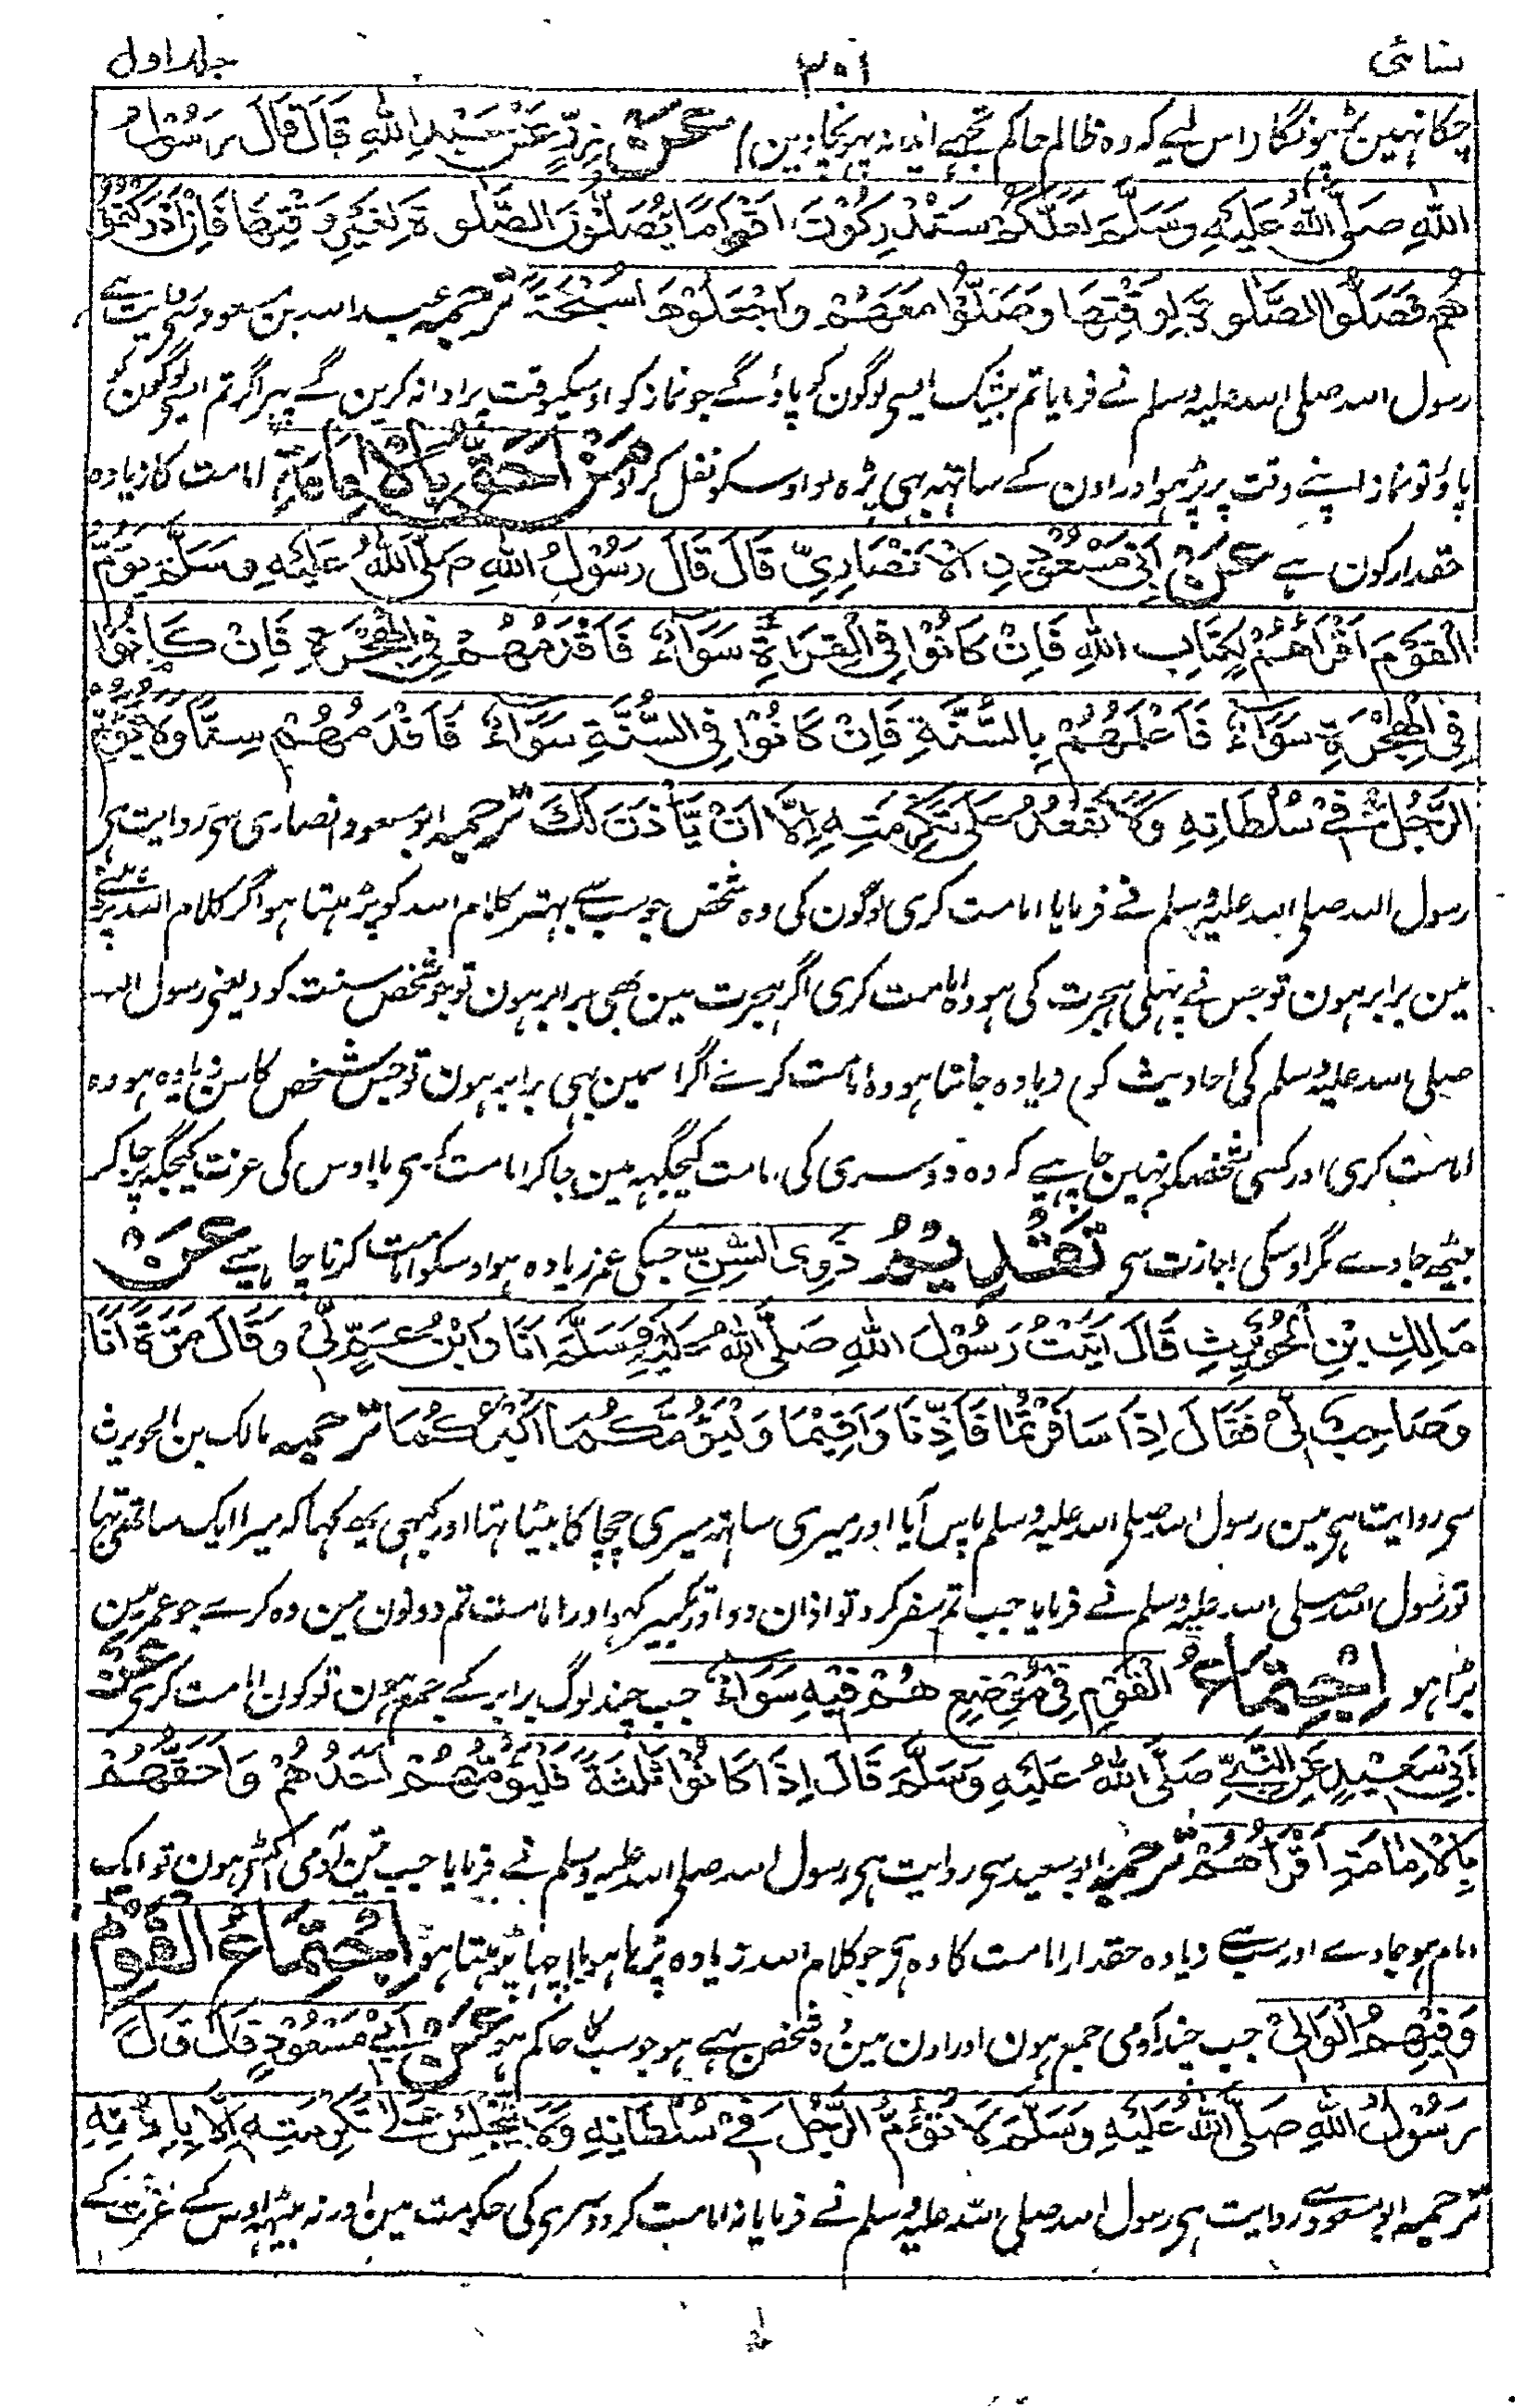 نسائی ۳۰۱ جلد اول
چکا نہین پڑہونگا (اس لیے کہ وہ ظالم حاکم تجھے ایذا نہ پہونچاوین) عَنْ زِرٍّ عَنْ عَبْدِ اللّٰهِ قَالَ قَالَ رَسُوْلُ
اللّٰهِ صَلَّى اللّٰهُ عَلَيْهِ وَسَلَّمَ لَعَلَّكُمْ سَتُدْرِكُوْنَ اَقْوَامًا يُصَلُّوْنَ الصَّلٰوةَ لِغَيْرِ وَقْتِهَا فَاِنْ اَدْرَكْتُمُوْ
هُمْ فَصَلُّوا الصَّلٰوةَ لِوَقْتِهَا وَصَلُّوْا مَعَهُمْ وَاجْعَلُوْهَا سُبْحَةً ترجمہ عبد اللہ بن مسعود سے روایت ہے
رسول اللہ صلی اللہ علیہ وسلم نے فرمایا تم بیشک ایسی لوگون کو پاؤگے جو نماز کو اوسکیوقت پر ادا نہ کرین گے پہر اگر تم ایسی لوگون کو
پاؤ تو نماز اپنے وقت پر پڑہو اور اون کے ساتہہ بہی پڑہ لو اوسکو نفل کرلو مَنْ اَحَقُّ بِالْاِمَامَةِ امامت کا زیادہ
حقدار کون ہے عَنْ اَبِيْ مَسْعُوْدٍ نِ الْاَنْصَارِيِّ قَالَ قَالَ رَسُوْلُ اللّٰهِ صَلَّى اللّٰهُ عَلَيْهِ وَسَلَّمَ يَؤُمُّ
الْقَوْمَ اَقْرَاُهُمْ لِكِتَابِ اللّٰهِ فَاِنْ كَانُوْا فِي الْقِرَاءَةِ سَوَاءً فَاَقْدَمُهُمْ فِي الْهِجْرَةِ فَاِنْ كَانُوْا
فِي الْهِجْرَةِ سَوَاءً فَاَعْلَمُهُمْ بِالسُّنَّةِ فَاِنْ كَانُوْا فِي السُّنَّةِ سَوَاءً فَاَقْدَمُهُمْ سِنًّا وَلَا تَؤُمَّ
الرَّجُلَ فِيْ سُلْطَانِهِ وَلَا تَقْعُدْ عَلٰى تَكْرِمَتِهِ اِلَّا اَنْ يَّأْذَنَ لَكَ ترجمہ ابو مسعود انصاری سی روایت ہی
رسول اللہ صلی اللہ علیہ وسلم نے فرمایا امامت کری لوگون کی وہ شخص جو سب سے بہتر کلام اللہ کو پڑہتا ہو اگر کلام اللہ پڑہنے
مین برابر ہون تو جس نے پہلی ہجرت کی ہو وہ امامت کری اگر ہجرت مین بھی برابر ہون تو جو شخص سنت کو (یعنی رسول اللہ
صلی اللہ علیہ وسلم کی احادیث کو) زیادہ جانتا ہو وہ امامت کرے اگر اسمین بہی برابر ہون تو جس شخص کا سن زیادہ ہو وہ
امامت کری اور کسی شخص کو نہین چاہیے کہ وہ دوسری کی امامت کیجگہہ مین جاکر امامت کری یا اوس کی عزت کیجگہہ پر جاکر
بیٹھ جاوے مگر اوسکی اجازت سی تَقْدِيْمُ ذَوِى السِّنِّ جسکی عمر زیادہ ہو اوسکو امامت کرنا چاہیے عَنْ
مَالِكِ بْنِ الْحُوَيْرِثِ قَالَ اَتَيْتُ رَسُوْلَ اللّٰهِ صَلَّى اللّٰهُ عَلَيْهِ وَسَلَّمَ اَنَا وَابْنُ عَمٍّ لِّيْ وَقَالَ مَرَّةً اَنَا
وَصَاحِبٌ لِّيْ فَقَالَ اِذَا سَافَرْتُمَا فَاَذِّنَا وَاَقِيْمَا وَلْيَؤُمَّكُمَا اَكْبَرُكُمَا ترجمہ مالک بن الحویرث
سی روایت ہی مین رسول اللہ صلی اللہ علیہ وسلم پاس آیا اور میری ساتہہ میری چچا کا بیٹا تہا اور کبہی یہ کہا کہ میرا ایک ساتھی تہا
تو رسول اللہ صلی اللہ علیہ وسلم نے فرمایا جب تم سفر کرو تو اذان دو اور تکبیر کہو اور امامت تم دونون مین وہ کرے جو عمر مین
بڑا ہو اِجْتِمَاعُ الْقَوْمِ فِيْ مَوْضِعٍ هُمْ فِيْهِ سَوَاءٌ جب چند لوگ برابر کے جمع ہون تو کون امامت کری عَنْ
اَبِيْ سَعِيْدٍ عَنِ النَّبِيِّ صَلَّى اللّٰهُ عَلَيْهِ وَسَلَّمَ قَالَ اِذَا كَانُوْا ثَلٰثَةً فَلْيَؤُمَّهُمْ اَحَدُهُمْ وَاَحَقُّهُمْ
بِالْاِمَامَةِ اَقْرَاُهُمْ ترجمہ ابو سعید سی روایت ہی رسول اللہ صلی اللہ علیہ وسلم نے فرمایا جب تین آدمی اکٹھی ہون تو ایک
امام ہو جاوے اور سب سے زیادہ حقدار امامت کا وہ ہی جو کلام اللہ زیادہ پڑہا ہو یا اچہا پڑہتا ہو اِجْتِمَاعُ الْقَوْمِ
وَفِيْهِمُ الْوَالِيْ جب چند آدمی جمع ہون اور اون مین وہ شخص بہی ہو جو سب کا حاکم ہو عَنْ اَبِيْ مَسْعُوْدٍ قَالَ قَالَ
رَسُوْلُ اللّٰهِ صَلَّى اللّٰهُ عَلَيْهِ وَسَلَّمَ لَا تُؤَمُّ الرَّجُلُ فِيْ سُلْطَانِهِ وَلَا يُجْلَسُ عَلٰى تَكْرِمَتِهِ اِلَّا بِاِذْنِهِ
ترجمہ ابو مسعود سے روایت ہی رسول اللہ صلی اللہ علیہ وسلم نے فرمایا نہ امامت کر دوسری کی حکومت مین اور نہ بیٹہہ اوس کے عزت کے